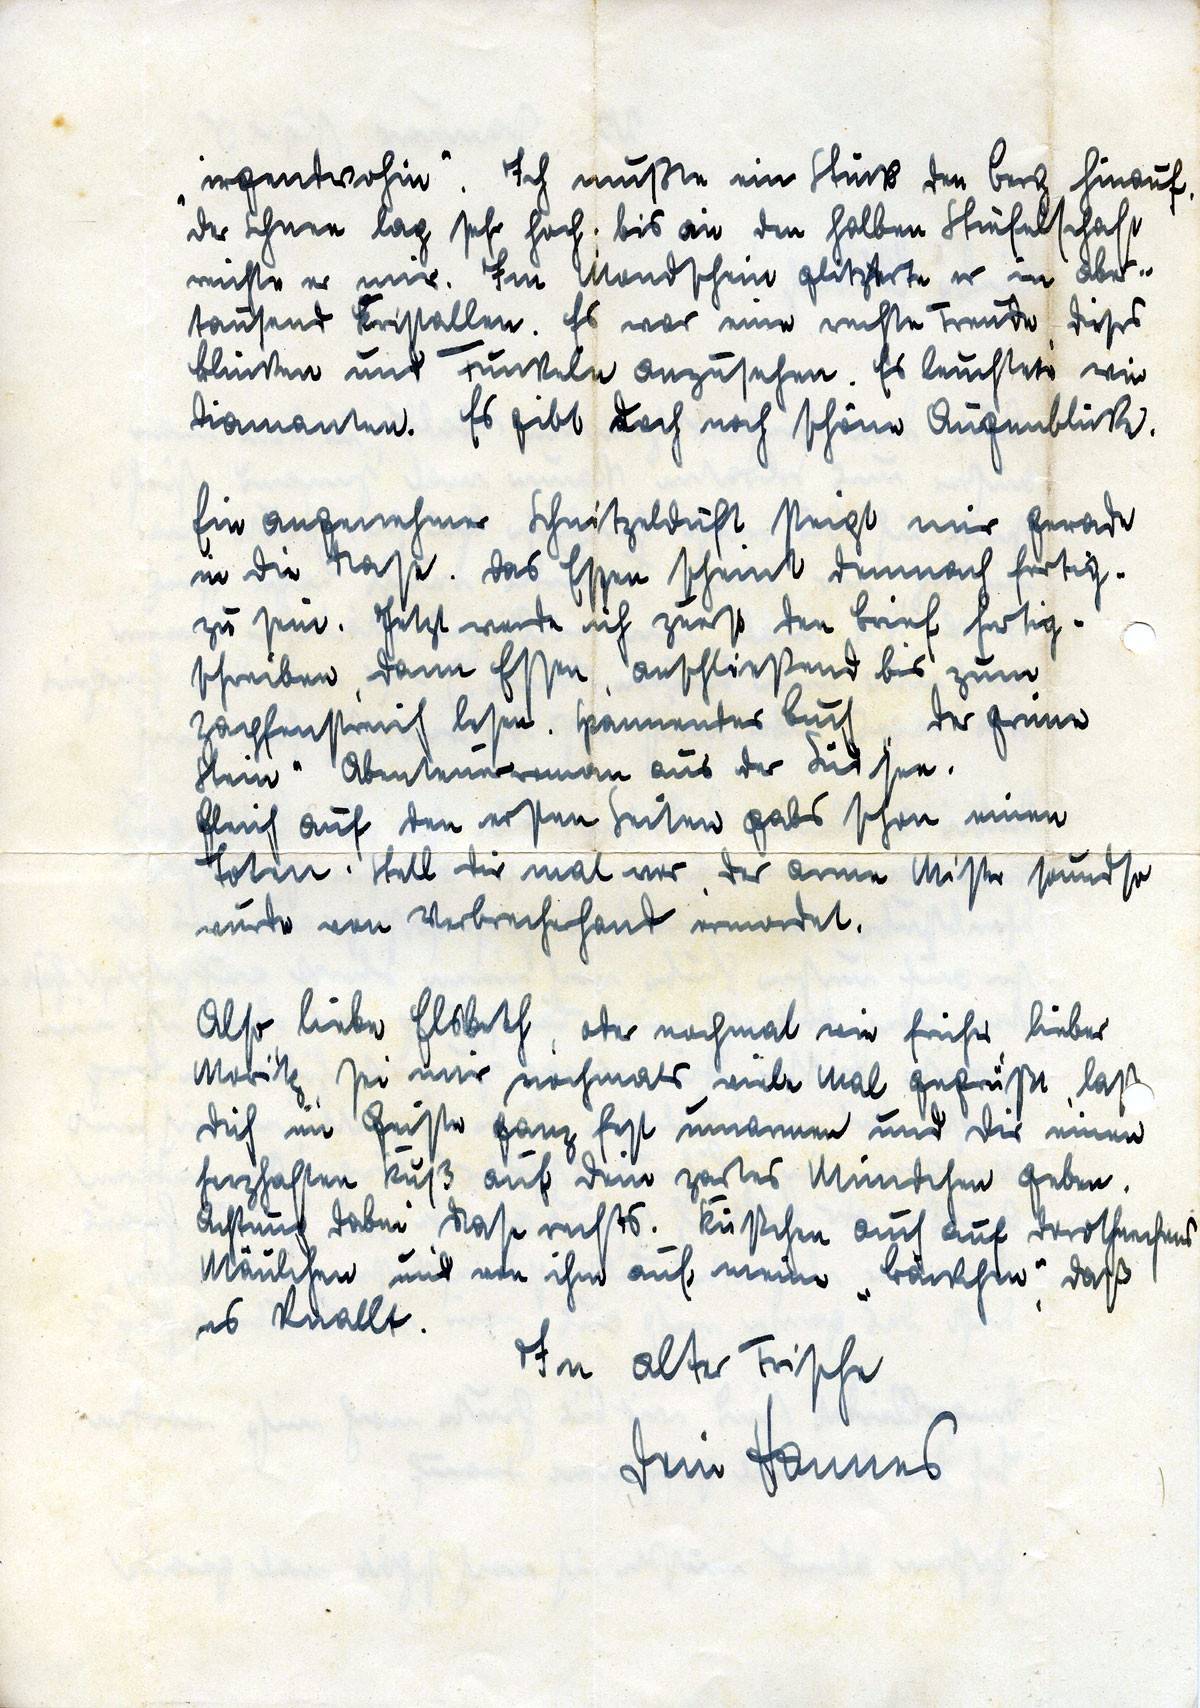 „irgendwohin". Ich mußte ein Stück den Berg hinauf.
Der Schnee lag sehr hoch, bis an den halben Stiefelschaft
reichte er mir. Im Mondschein glitzerte er in aber-
tausend Kristallen. Es war eine rechte Freude, dieses
Blinken und Funkeln anzusehen. Es leuchtete wie
Diamanten. Es gibt doch noch schöne Augenblicke.
Ein angenehmer Schnitzelduft steigt mir gerade
in die Nase. Das Essen scheint demnach fertig
zu sein. Jetzt werde ich zuerst den Brief fertig-
schreiben, dann Essen, anschließend bis zum
Zapfenstreich lesen. Spannendes Buch „Der grüne
Stein" Abenteuerroman aus der Südsee.
Gleich auf den ersten Seiten gabs schon einen
Toten. Stell dir mal vor, der arme Mister soundso
wurde von Verbrecherhand ermordet.
Also, liebe Elsbeth, oder nochmal wie früher lieber
Moritz, sei mir nochmals viele Mal gegrüßt, laß
Dich im Geiste ganz fest umarmen und Dir einen
herzhaften Kuß auf Dein zartes Mündchen geben.
Achtung dabei Nase rechts. Küßchen auch auf Dorotheechens
Mäulchen und von ihm auf meine „Bäckchen", daß
es knallt.
In alter Frische
Dein Hannes